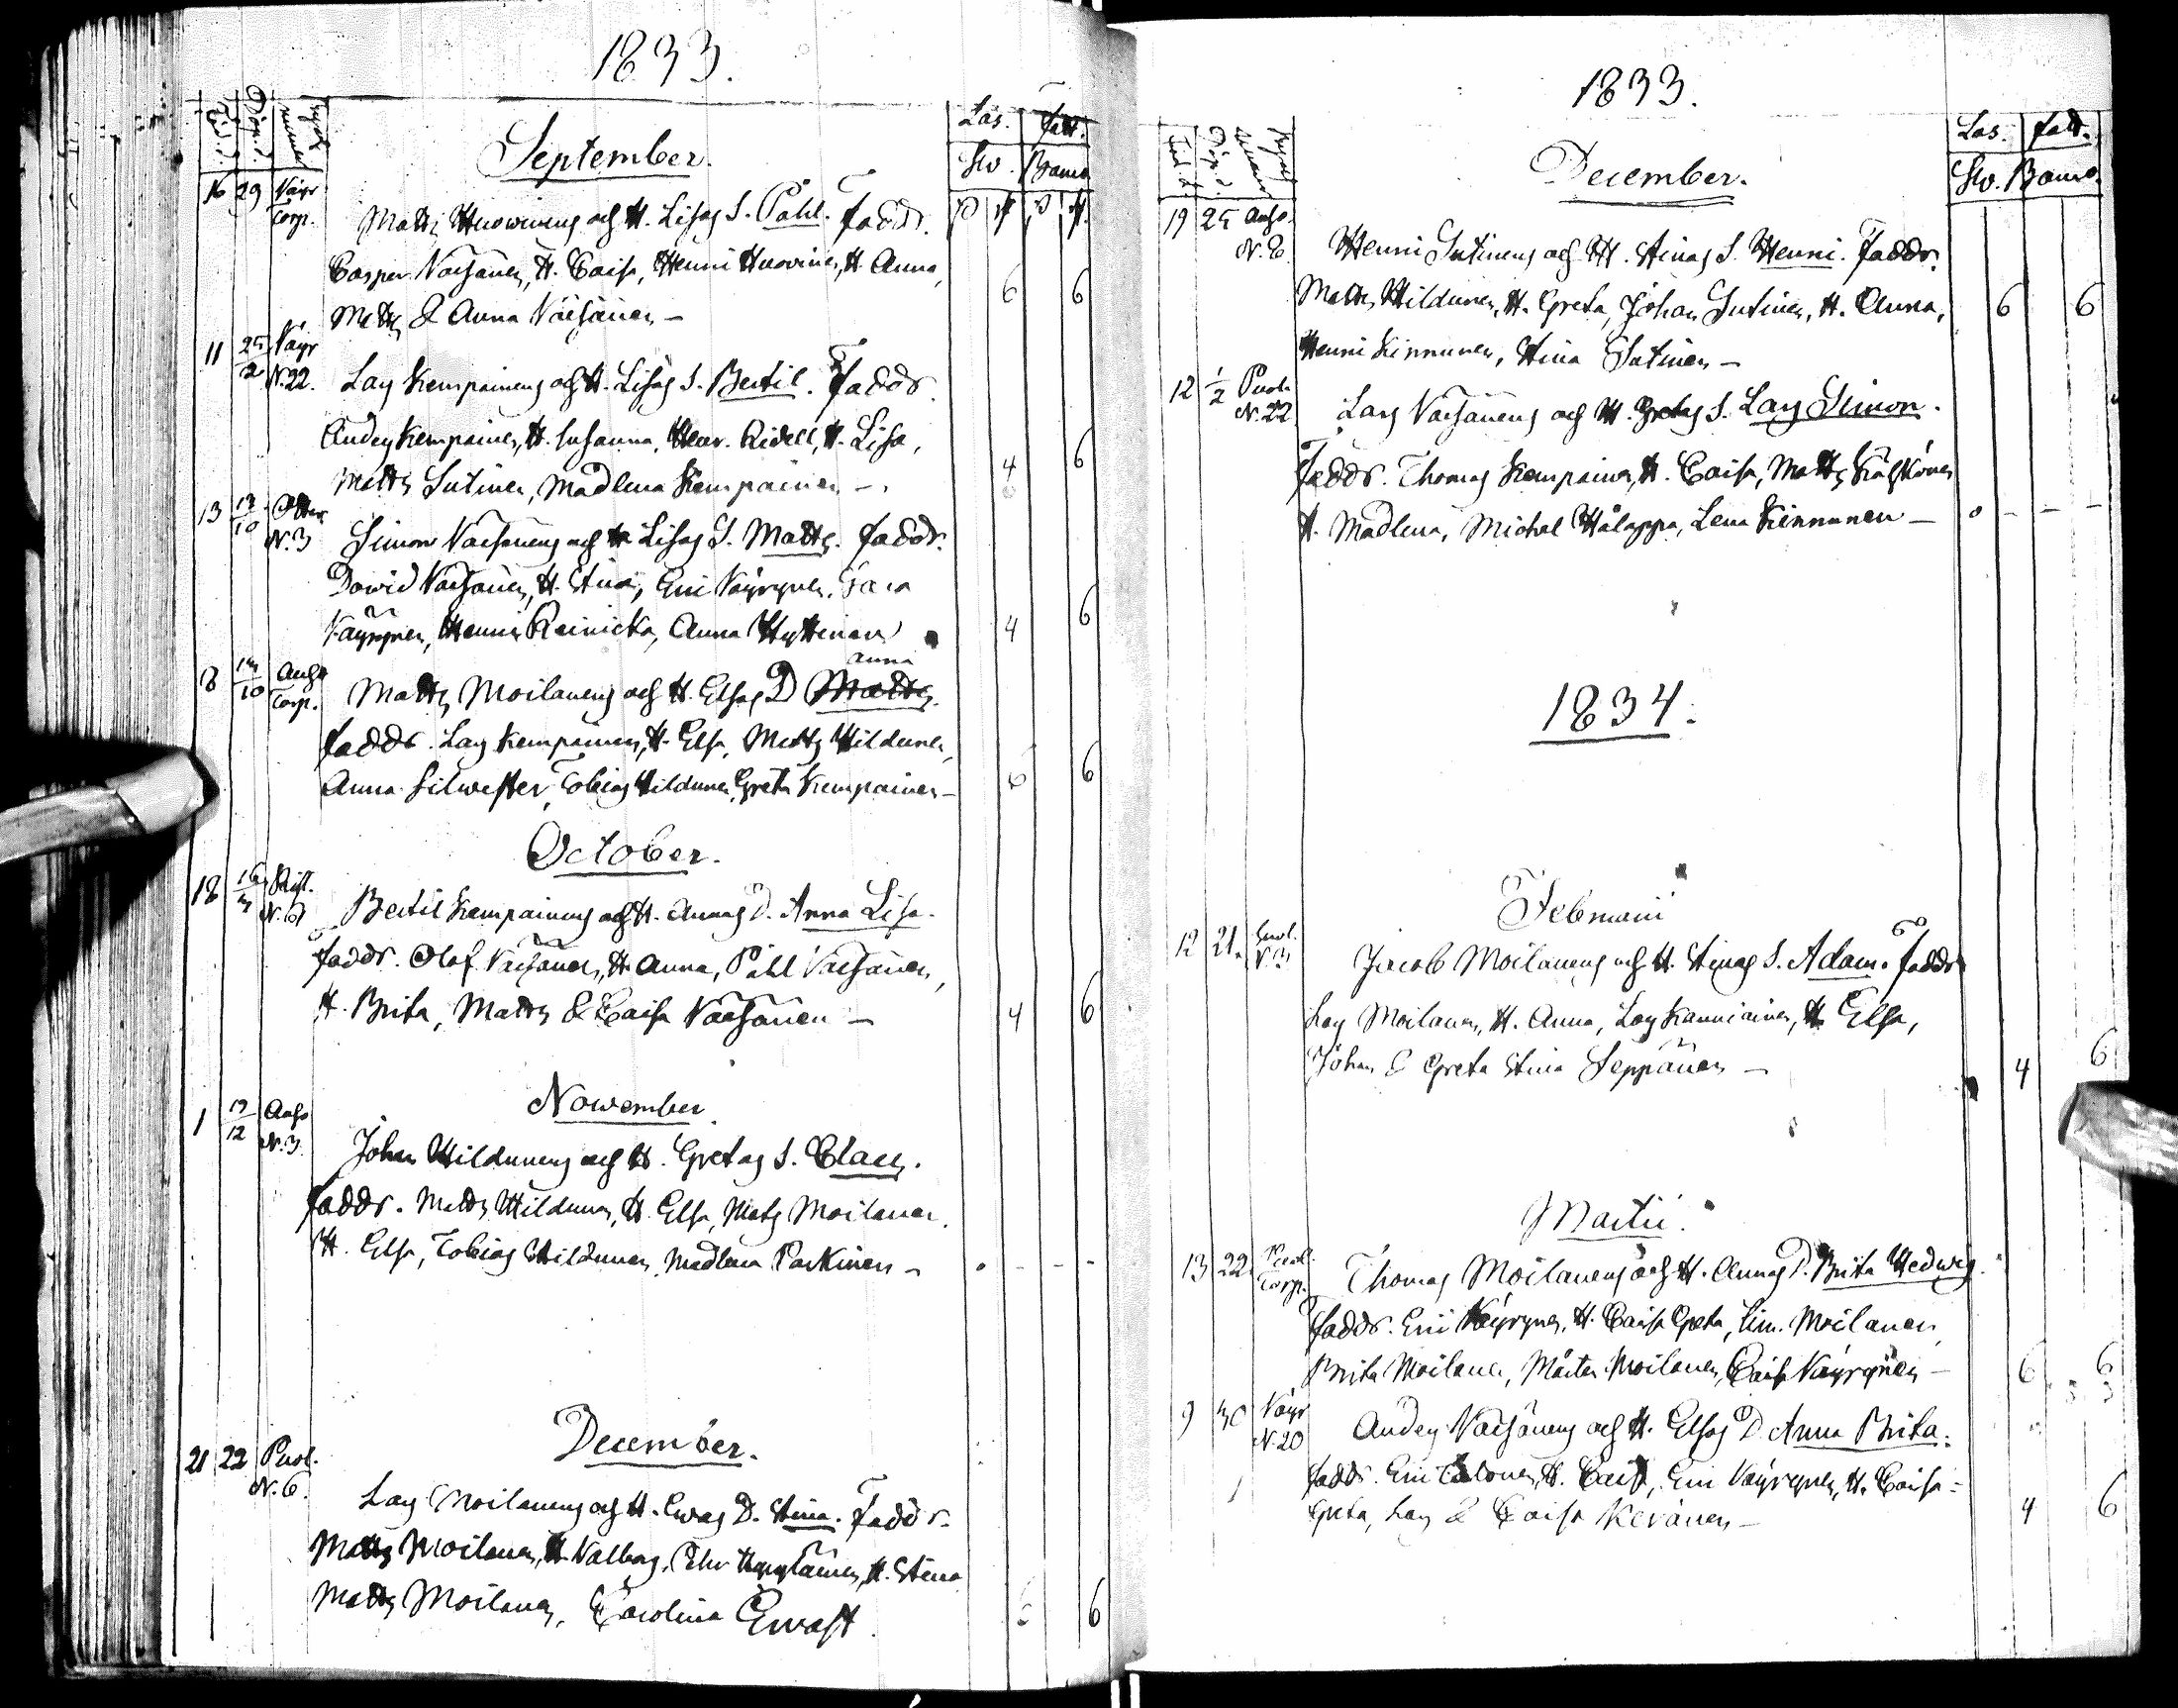 1833.
Född. Döp. d.
Las. Fatt.
September.
Sw. Barnh
16 29 Väyr Corp. Matts Huowinens och H. Lisas S. Påhl. Faddr.
Casper Väisänen, H. Caisa, Henric Huovinen, H. Anna,
Matts & Anna Väisänen – 6 6
11 25/12 Väyr N. 22. Lars Kempainens och H. Lisas S. Bertil. Faddr.
Anders Kempainen, H. Susanna, Henr. Ridell, H. Lisa,
Matts Sutinen, Madlena Kempainen – 4 6
13 13/10 N. 3 Simon Väisänens och H Lisas S. Matts. Faddr.
David Väisänen, H. Stina, Eric Väyrynen, Sara
Väyrynen, Henric Reinicka, Anna Hyttinen 4 6
Anna
8 13/10 Corp. Matts Moilanens och H. Elsas D Matts.
Faddr. Lars Kempainen, H. Elsa, Matts Hildunen,
Anna Silwester, Tobias Hildunen, Greta Kempainen – 6 6
October.
18 16/3 N. 6 Bertil Kempainens och H. Annas D. Anna Lisa.
Faddr. Olof Väisänen, H. Anna, Påhl Väisänen,
H. Brita, Matts & Caisa Väisänen – 4 6
November
1 12 N. 3. Johan Hildunens och H. Gretas S. Claes.
Faddr. Matts Hildunen, H. Elsa, Mats Moilanen,
H. Elsa, Tobias Hildunen, Madlena Parkinen – - - -
December.
21 22 Puol. N. 6. Lars Moilanens och H. Ewas D. Stina. Faddr.
Matts Moilanen, H. Valborg, H. Stina
Matts Moilanen, Carolina Ewast. 6
1833.
Las. Fatt.
December.
Sw. Barnh.
19 25 N. 2. Henric Sutinens och H. Stinas S. Henric. Faddr.
Matts Hildunen, H. Greta, Johan Sutinen, H. Anna, 6 6
Henric Kinnunen, Stina Sutinen –
12 1/2 Puol. N. 22 Lars Väisänens och H. Gretas S. Lars Simon.
Faddr. Thomas Kempainen, H. Caisa, Matts
H. Madlena, Michel Hålappa, Lena Kinnunen – - - -
1834.
Februarii
12 21. Puol. N. 3 Jacob Moilanens och H. Stinas S. Adam. Faddr
Lars Moilanen, H. Anna, Lars Kanniainen, H Elsa,
Johan & Greta Stina Seppänen – 4 6
Martii.
13 22. Puol. Corp. Thomas Moilanens och H. Annas D. Brita Hedwig.
Faddr. Eric Väyrynen, H. Caisa Greta, Sim. Moilanen
Brita Moilanen, Mårten Moilanen, Caisa Väyrynen – 6 6
9 30 Väyr N. 20 Anders Väisänens och H. Elsas D. Anna Brita.
Faddr. Eric H. Caisa, Eric Väyrynen, H. Caisa =
Greta, Lars & Caisa Keränen – 4 6